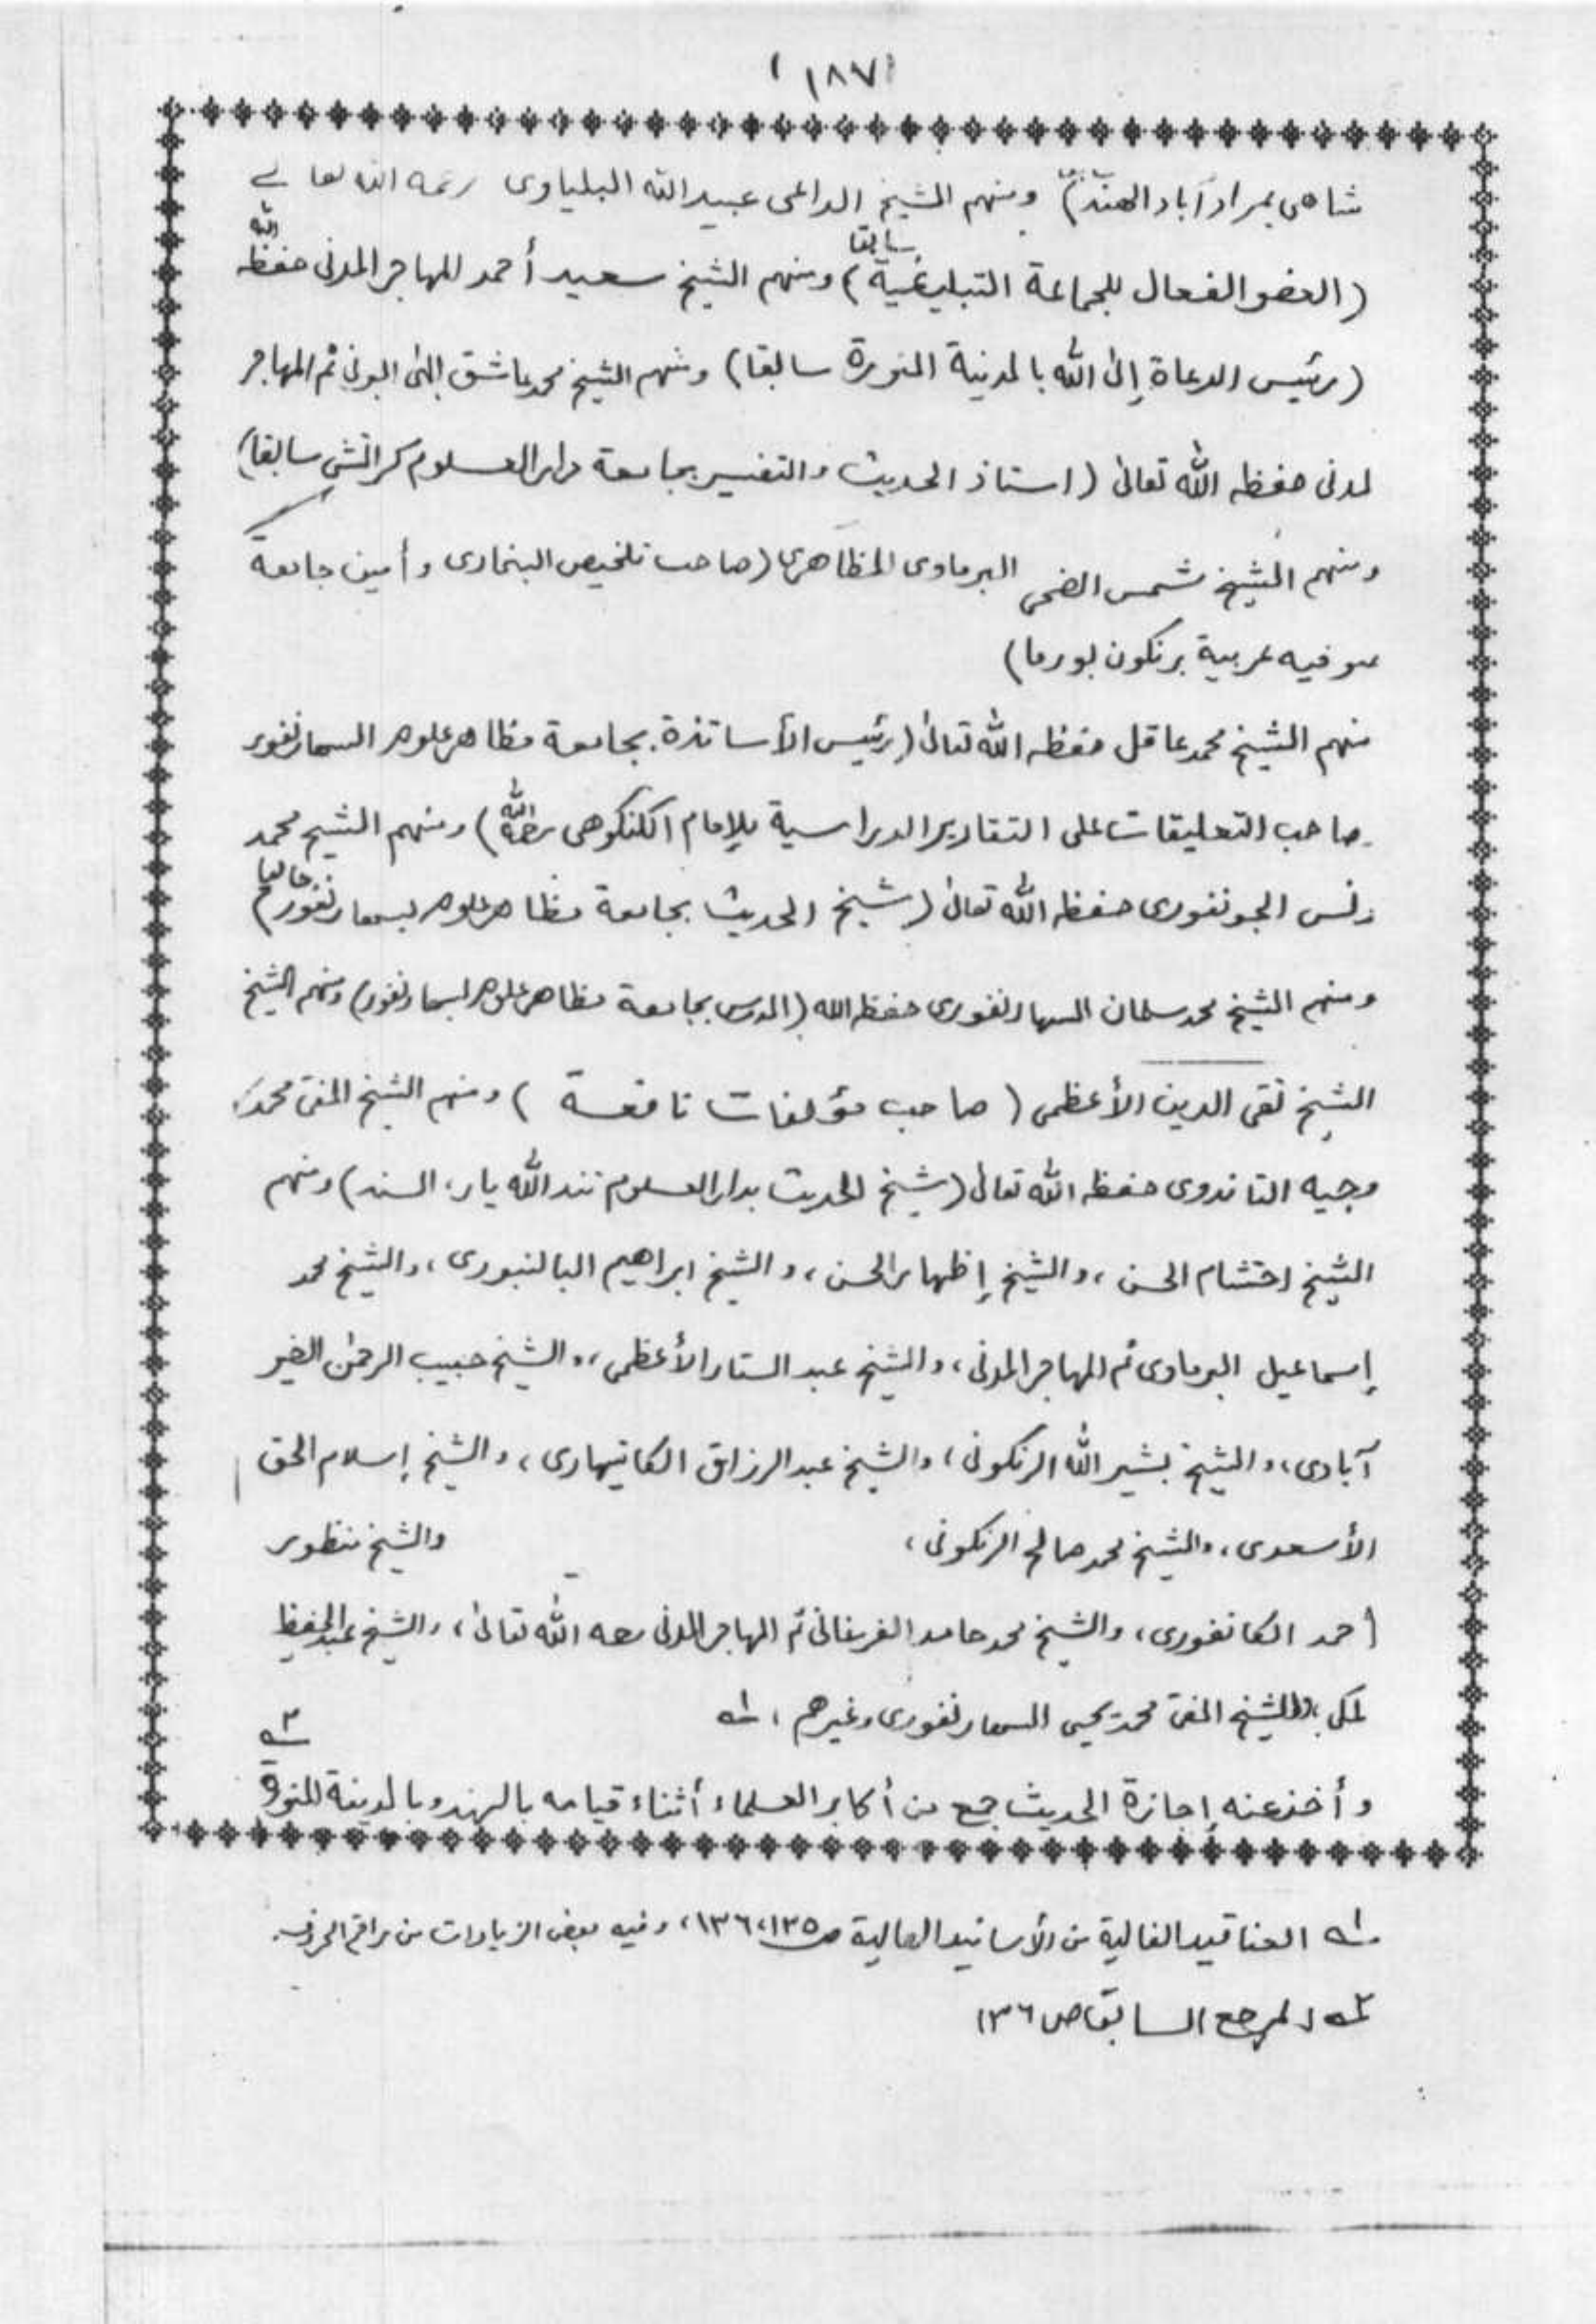 (١٨٧)
شاهى بمراد آباد الهند) ومنهم الشيخ الداعى عبيد الله البلياوى رحمه الله تعالى
(العضو الفعال للجماعة التبليغية سابقا) ومنهم الشيخ سعيد أحمد المهاجر المدنى حفظه الله
(رئيس الدعاة إلى الله بالمدينة المنورة سابقا) ومنهم الشيخ محمد عاشق إلهى البرنى ثم المهاجر
لمدنى حفظه الله تعالى (استاذ الحديث والتفسير بجامعة دار العلوم كراتشى سابقا)
ومنهم الشيخ شمس الضحى البرماوى المظاهرى (صاحب تلخيص البخارى وأمين جامعة
صوفيه عربية برنكون بورما)
منهم الشيخ محمد عاقل حفظه الله تعالى (رئيس الأساتذة بجامعة مظاهر علوم السهارنفور
صاحب التعليقات على التقارير الدراسية للإمام الكنكوهى رحمه الله) ومنهم الشيخ محمد
يونس الجونفورى حفظه الله تعالى (شيخ الحديث بجامعة مظاهر علوم بسهارنفور حاليا)
ومنهم الشيخ محمد سلمان السهارنفورى حفظه الله (المدرس بجامعة مظاهر علوم بسهارنفور) ومنهم الشيخ
الشيخ تقى الدين الأعظمى (صاحب مؤلفات نافعة) ومنهم الشيخ المفتى محمد
وجيه التاندوى حفظه الله تعالى (شيخ الحديث بدار العلوم تندالله يار، السند) ومنهم
الشيخ احتشام الحسن، والشيخ إظهار الحسن، والشيخ ابراهيم البالنبورى، والشيخ محمد
إسماعيل البرماوى ثم المهاجر المدنى، والشيخ عبد الستار الأعظمى، والشيخ حبيب الرحمن الخير
آبادى، والشيخ بشير الله الرنكونى، والشيخ عبد الرزاق الكاتيهارى، والشيخ إسلام الحق
الأسعدى، والشيخ محمد صالح الرنكونى، والشيخ منظور
أحمد الكانفورى، والشيخ محمد حامد الفرغانى ثم المهاجر المدنى رحمه الله تعالى، والشيخ عبد الحفيظ
لمكى، والشيخ المفتى محمد يحيى السهارنفورى وغيرهم، ١ـه
وأخذ عنه إجازة الحديث جمع من أكابر العلماء أثناء قيامه بالهند وبالمدينة المنورة ٢ـه
١ـه العناقيد الغالية من الأسانيد العالية ص ١٣٥، ١٣٦، وفيه بعض الزيادات من راقم الحروف.
٢ـه المرجع السابق ص ١٣٦